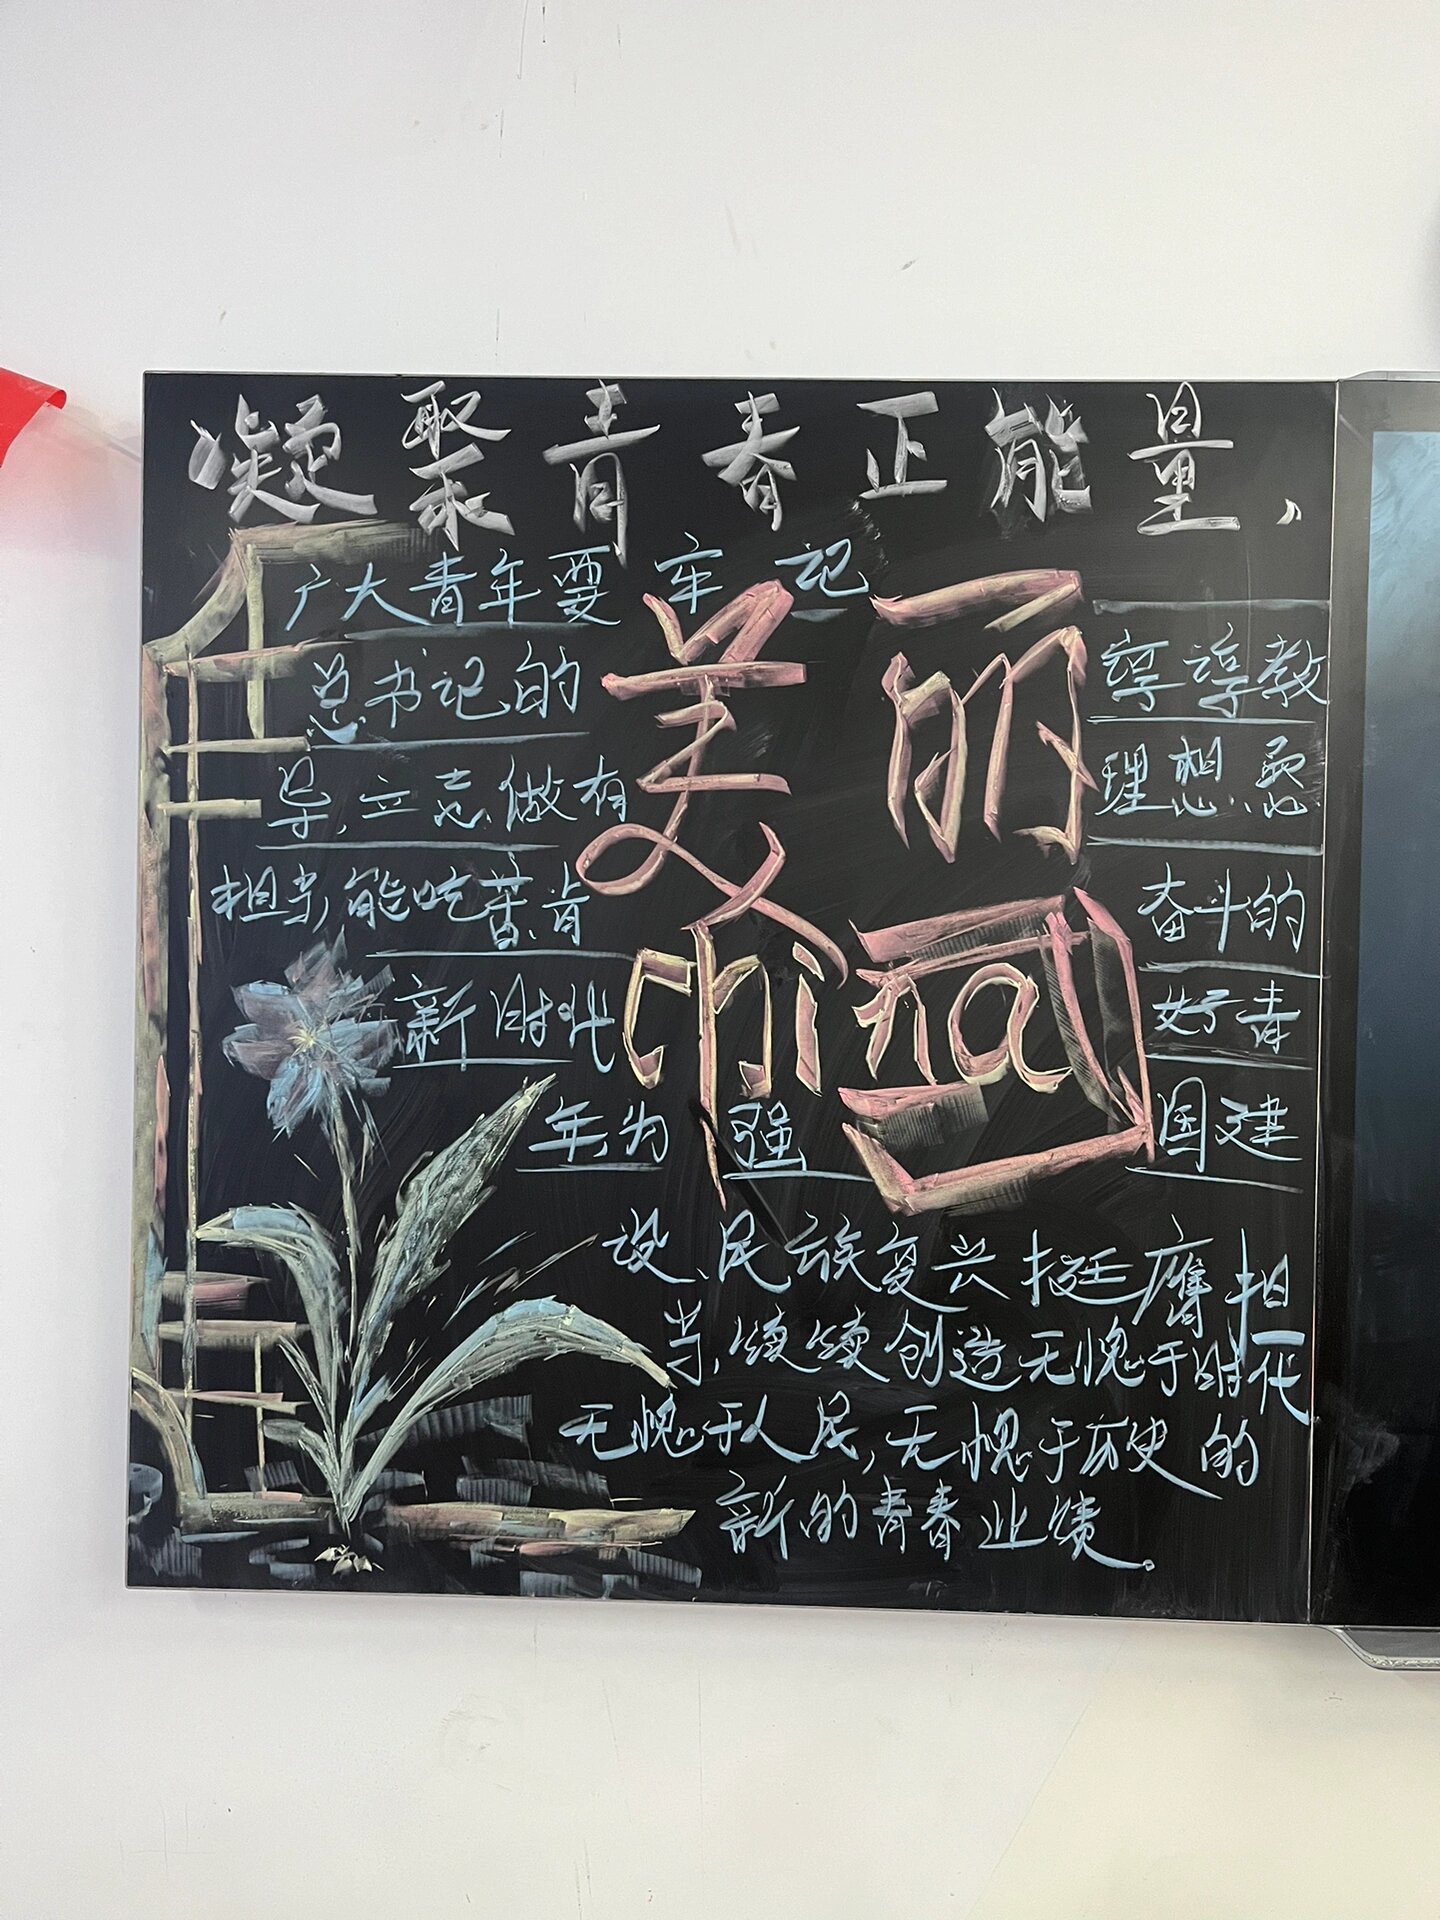 凝聚青春正能量,
广大青年要牢记
总书记的 谆谆教
导,立志做有 理想、勇
担当,能吃苦、肯 奋斗的
新时代 好青
年,为 强 国建
设、民族复兴挺膺担
当,续续创造无愧于时代
无愧于人民,无愧于历史的
新的青春业绩。
美丽
china